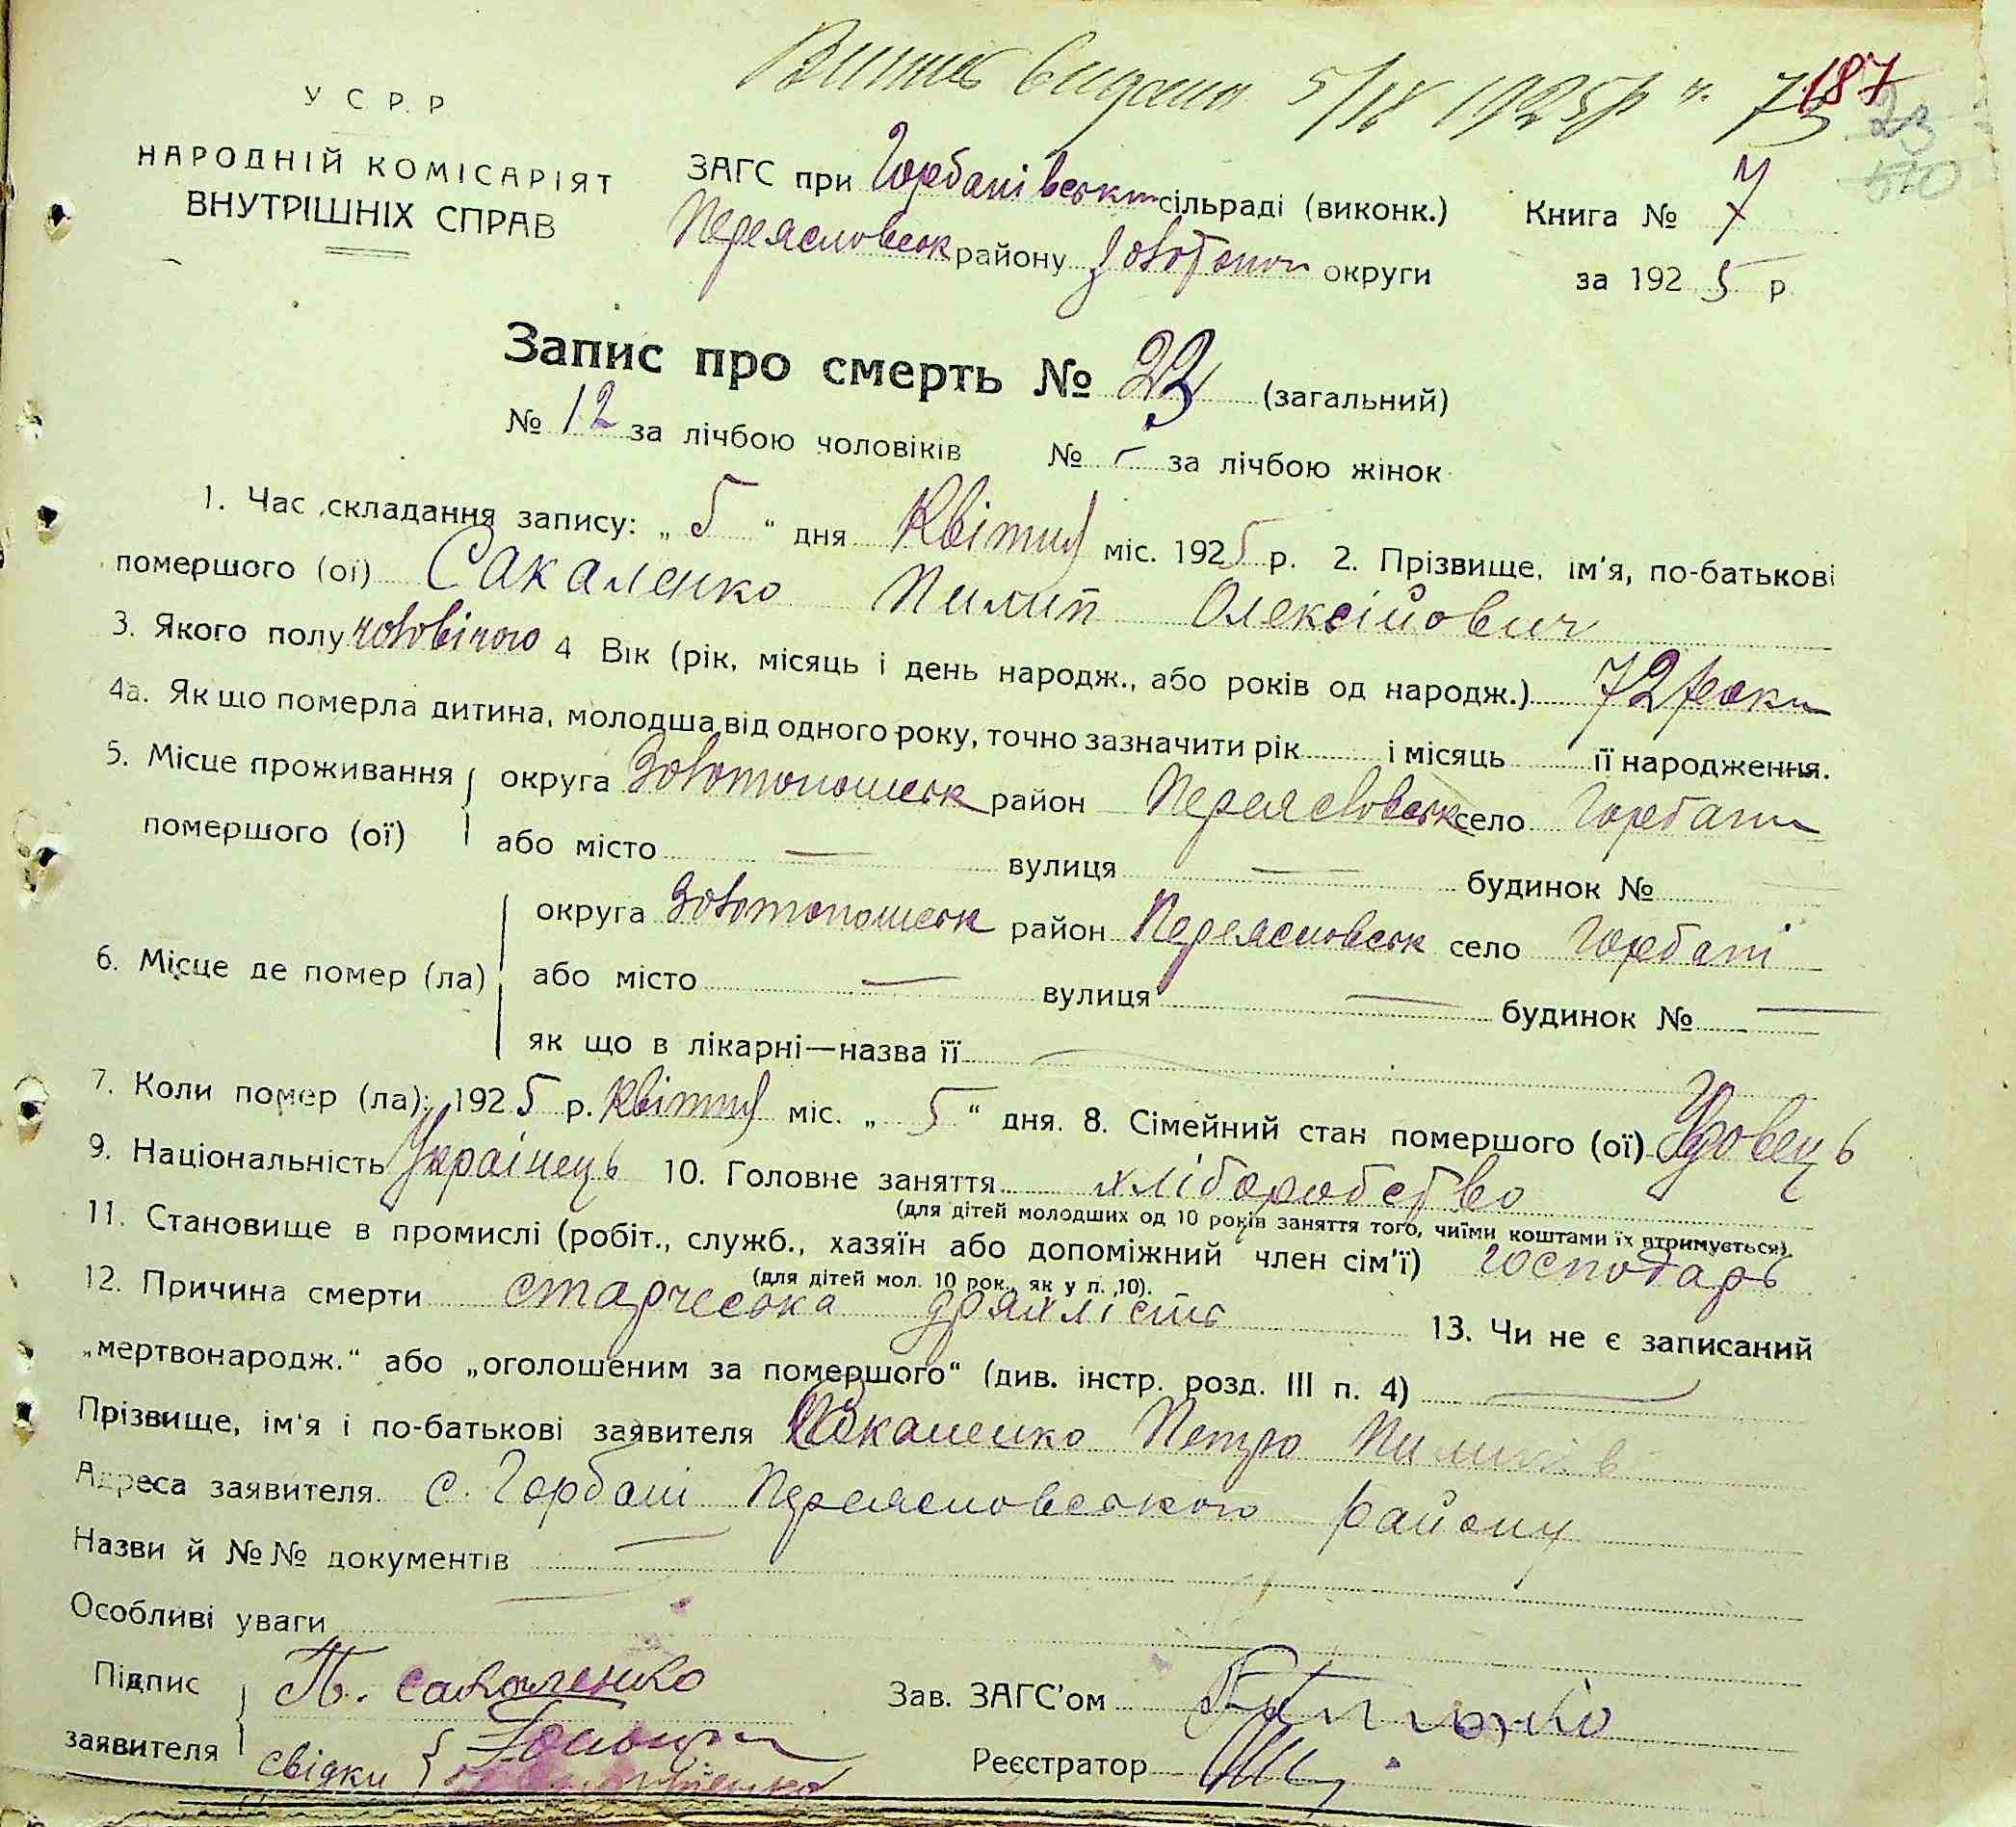 Витяг видано 5/IX 1925р н. 73 187
23
510
У С. Р. Р
НАРОДНІЙ КОМІСАРІЯТ
ВНУТРІШНІХ СПРАВ
ЗАГС при Горбанівськ сільраді (виконк.) Книга № 7
Переясловськ району Золотон округи за 192 5 р
Запис про смерть № 23 (загальний)
№ 12 за лічбою чоловіків № - за лічбою жінок
1. Час складання запису: „ 5 “ дня Квітня міс. 1925 р. 2. Прізвище, ім'я, по-батькові
помершого (ої) Сакаленко Пилип Олексійович
3. Якого полу чоловічого 4 Вік (рік, місяць і день народж., або років од народж.) 72 роки
4а. Як що померла дитина, молодша від одного року, точно зазначити рік і місяць її народження.
5. Місце проживання округа Золотоношськ район Переясловськ село Горбани
помершого (ої) або місто — вулиця — будинок №
округа Золотоношськ район Переясловськ село Горбані
6. Місце де помер (ла) або місто — вулиця — будинок № —
як що в лікарні—назва її —
7. Коли помер (ла): 192 5 р. Квітня міс. „ 5 “ дня. 8. Сімейний стан помершого (ої) Удовець
9. Національність Українець 10. Головне заняття хліборобство
(для дітей молодших од 10 років заняття того, чиїми коштами їх втримується).
11. Становище в промислі (робіт., служб., хазяїн або допоміжний член сім'ї) господарь
(для дітей мол. 10 рок., як у п. 10).
12. Причина смерти старчеська дряхлість 13. Чи не є записаний
„мертвонародж.“ або „оголошеним за помершого“ (див. інстр. розд. III п. 4) —
Прізвище, ім'я і по-батькові заявителя Сакаленко Петро Пилипів
Адреса заявителя с. Горбані Переясловського району
Назви й №№ документів —
Особливі уваги
Підпис П. Сакаленко Зав. ЗАГС'ом
заявителя свідки Реєстратор